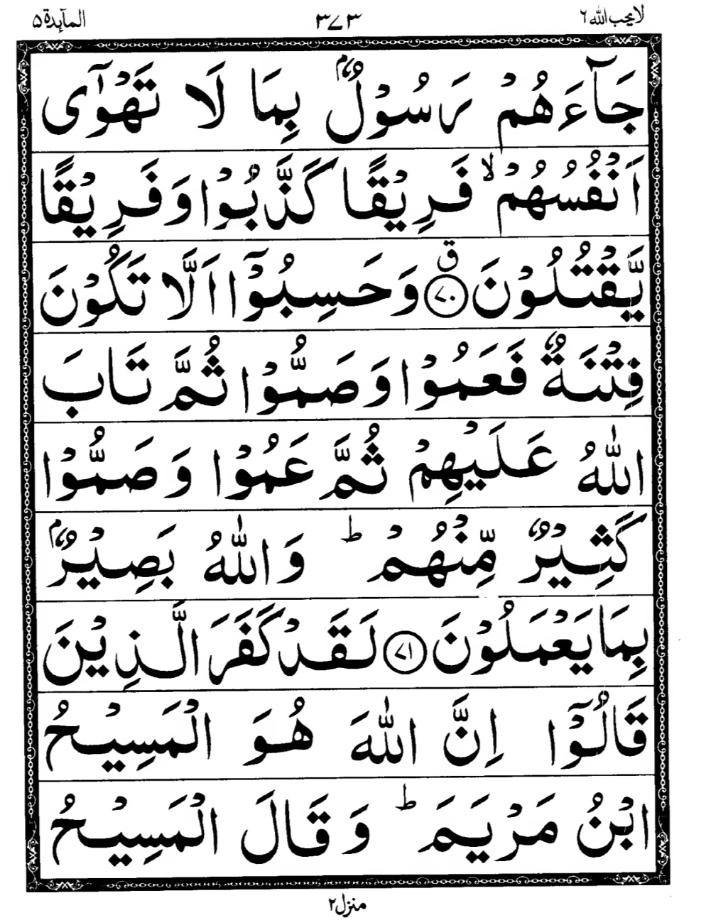 المآىدة ۵ ۳۷۳ لا یحب الله ۶
جَآءَهُمْ رَسُوْلٌۢ بِمَا لَا تَهْوٰۤى
اَنْفُسُهُمْ ۙ فَرِیْقًا كَذَّبُوْا وَ فَرِیْقًا
یَّقْتُلُوْنَ ۗ﴿۷۰﴾ وَ حَسِبُوْۤا اَلَّا تَكُوْنَ
فِتْنَةٌ فَعَمُوْا وَ صَمُّوْا ثُمَّ تَابَ
اللهُ عَلَیْهِمْ ثُمَّ عَمُوْا وَ صَمُّوْا
كَثِیْرٌ مِّنْهُمْ ؕ وَ اللهُ بَصِیْرٌۢ
بِمَا یَعْمَلُوْنَ ﴿۷۱﴾ لَقَدْ كَفَرَ الَّذِیْنَ
قَالُوْۤا اِنَّ اللهَ هُوَ الْمَسِیْحُ
ابْنُ مَرْیَمَ ؕ وَ قَالَ الْمَسِیْحُ
منزل ۲